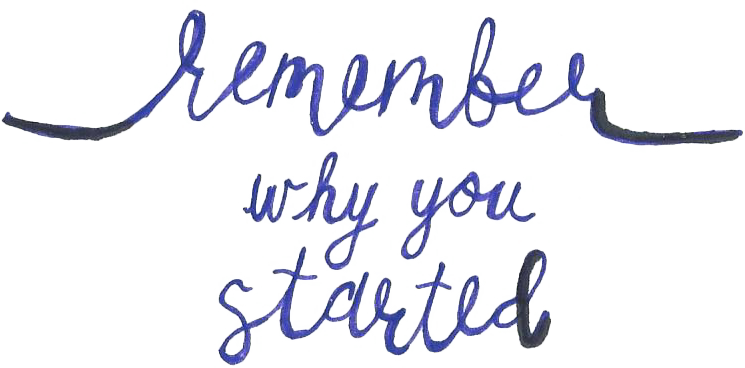 remember
why you
started